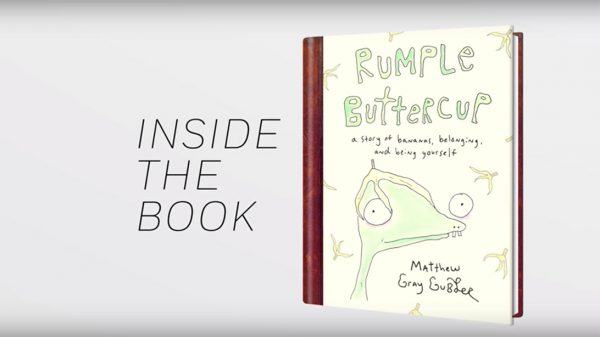 INSIDE
THE
BOOK
RUMPLE
BUTTERCUP
a story of bananas, belonging,
and being yourself
Matthew
Gray Gubler